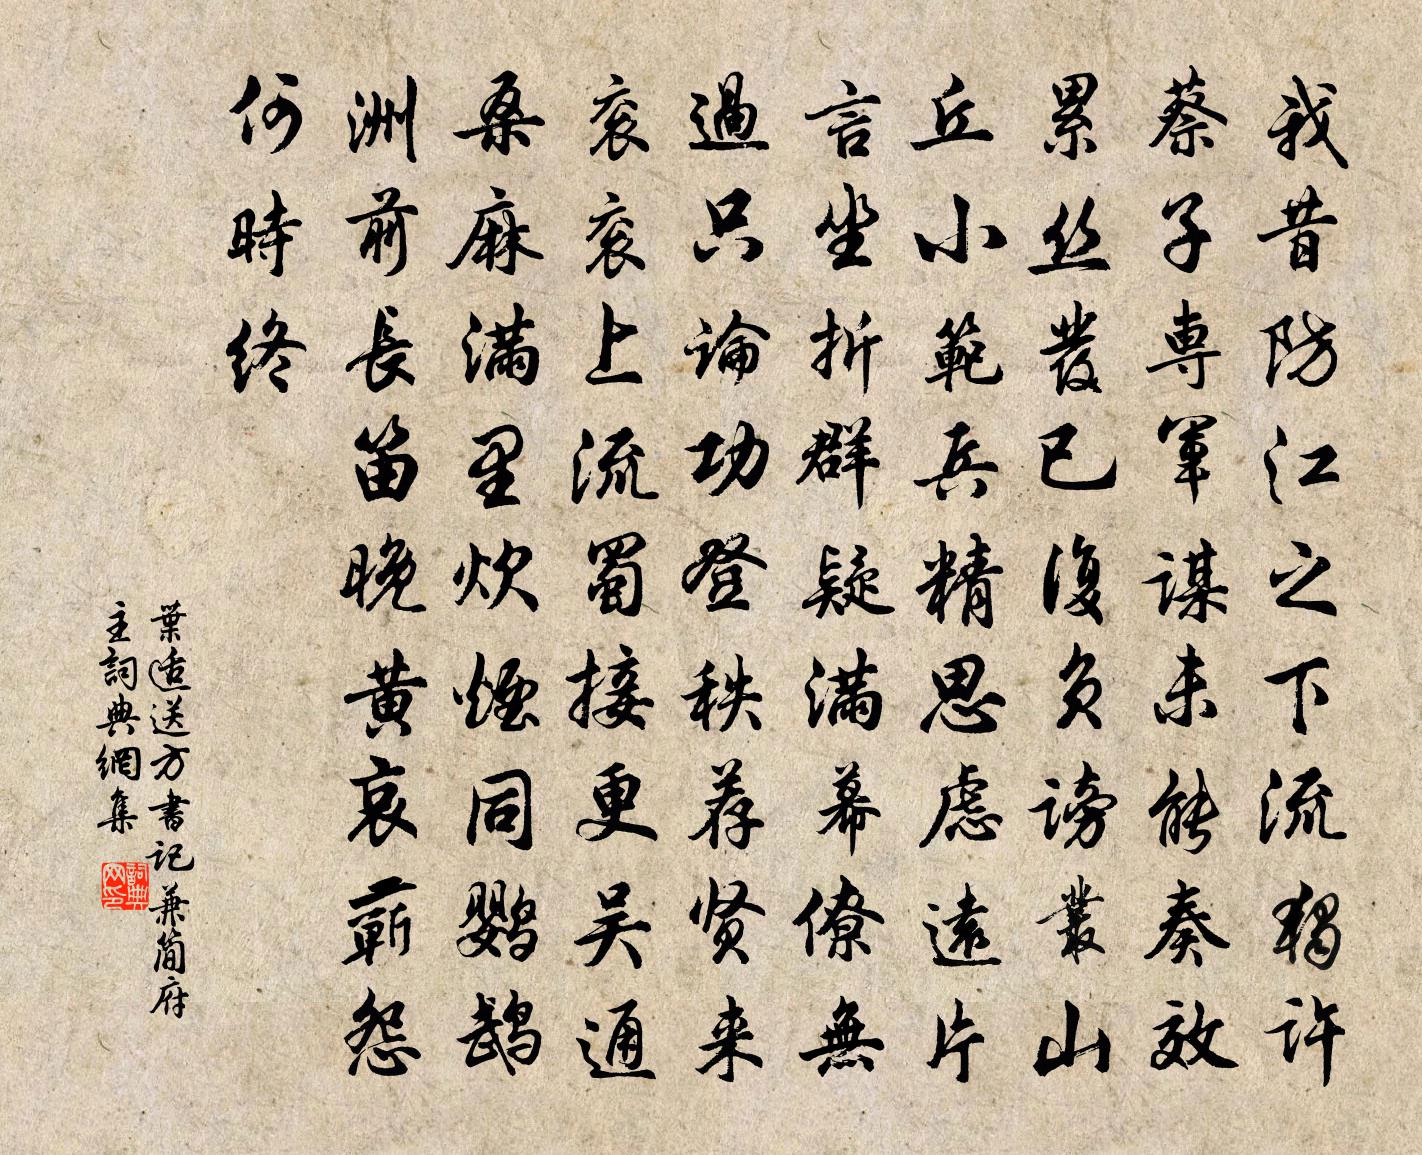 我昔防江之下流獨許
蔡子専軍謀未能奏效
累丝發已復負謗叢山
丘小範兵精思慮遠片
言坐折群疑滿幕僚無
過只論功登秩荐贤来
衮衮上流蜀接更吴通
桑麻滿里炊煙同鹦鹉
洲前長笛晚黄哀蘄怨
何時終
葉适送方書記兼簡府
主詞典網集
詞典网印